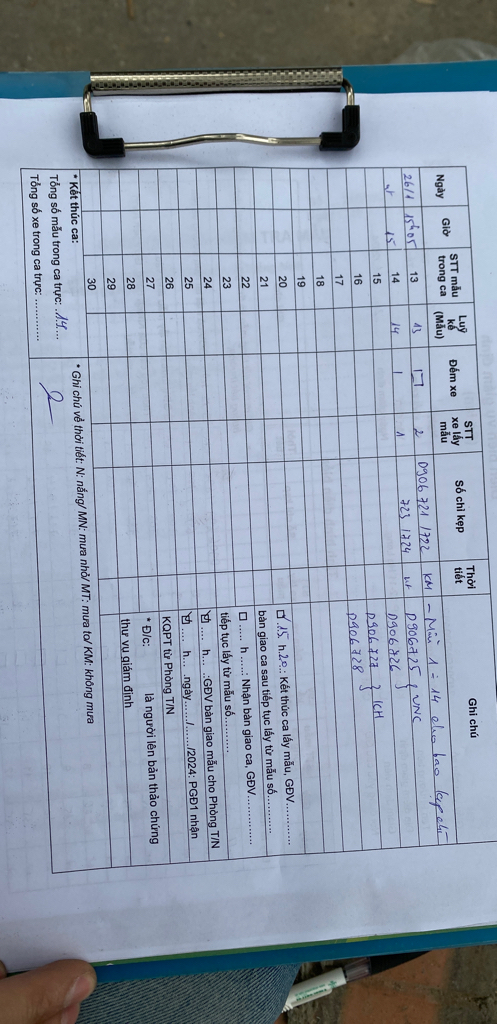 Ngày Giờ STT mẫu trong ca Luỹ kế (Mẫu) Đếm xe STT xe lấy mẫu Số chì kẹp Thời tiết Ghi chú
26/1 15h05 13 13 2 D906 721 /722 KM - Mẫu 1 - 14 cho bao kẹp chì
nt 15 14 14 1 1 723 /724 nt D906725 } VNC
D906726
15 D906727 } KH
16 D906728
17
18
19
20 15 h 20.: Kết thúc ca lấy mẫu, GĐV............
21 bàn giao ca sau tiếp tục lấy từ mẫu số..........
22 ☐ ..... h .....: Nhận bàn giao ca, GĐV.............
23 tiếp tục lấy từ mẫu số..........
24 ..... h... .:GĐV bàn giao mẫu cho Phòng T/N
25 ..... h... .ngày....../....../2024: PGĐ1 nhận
26 KQPT từ Phòng T/N
27 * Đ/c: là người lên bản thảo chứng
28 thư vụ giám định
29
30
* Kết thúc ca:
Tổng số mẫu trong ca trực: ..14...
Tổng số xe trong ca trực: ............
* Ghi chú về thời tiết: N: nắng/ MN: mưa nhỏ/ MT: mưa to/ KM: không mưa